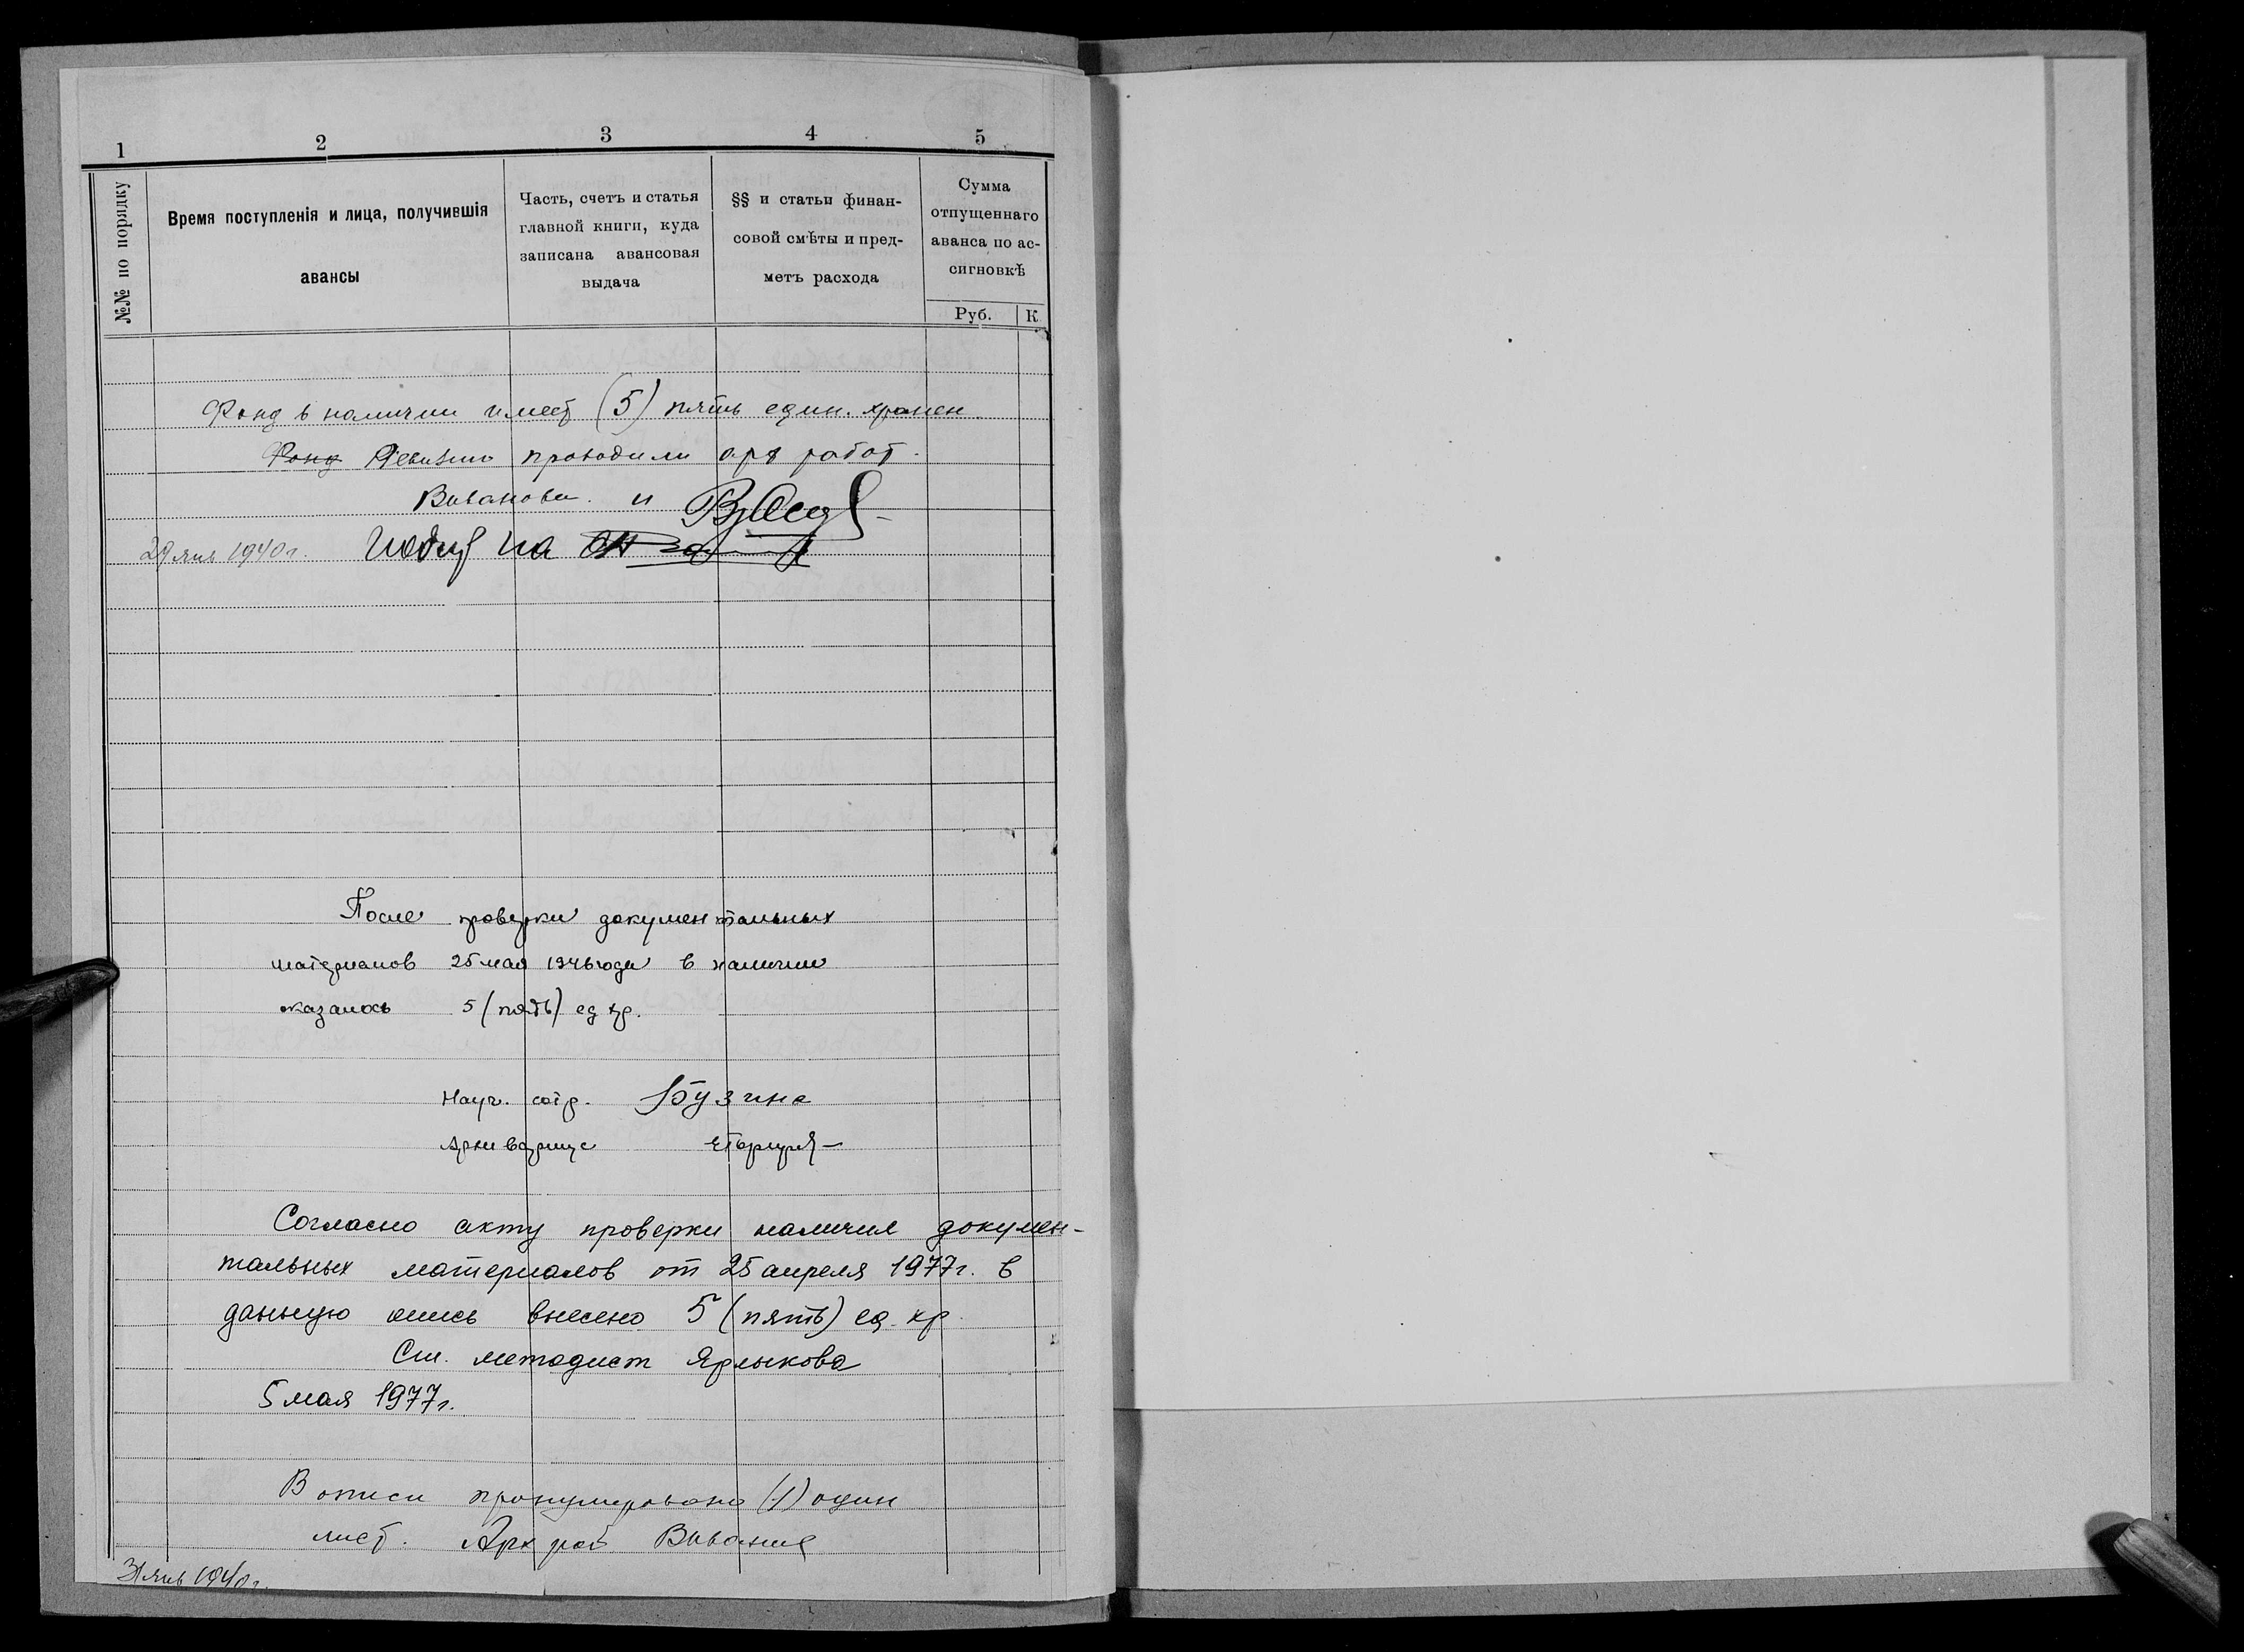 1 2 3 4 5
№№ по порядку
Время поступленія и лица, получившія
авансы
Часть, счетъ и статья
главной книги, куда
записана авансовая
выдача
§§ и статьи финан-
совой смѣты и пред-
метъ расхода
Сумма
отпущеннаго
аванса по ас-
сигновкѣ
Руб. К
Фонд в наличии имеет (5) пять един. хранен.
Фонд Ревизию проводили арх работ.
и
29 янв 1940 г.
После проверки документальных
материалов 25 мая 1946 года в наличии
оказалось 5 (пять) ед хр.
Науч. сотр. Бузина
Архивариус
Согласно акту проверки наличия докумен-
тальных материалов от 25 апреля 1977г. в
данную опись внесено 5 (пять) ед. хр.
Ст. методист Ярлыкова
5 мая 1977г.
В описи пронумеровано (1) один
лист. Арх раб
31 янв 1940 г.